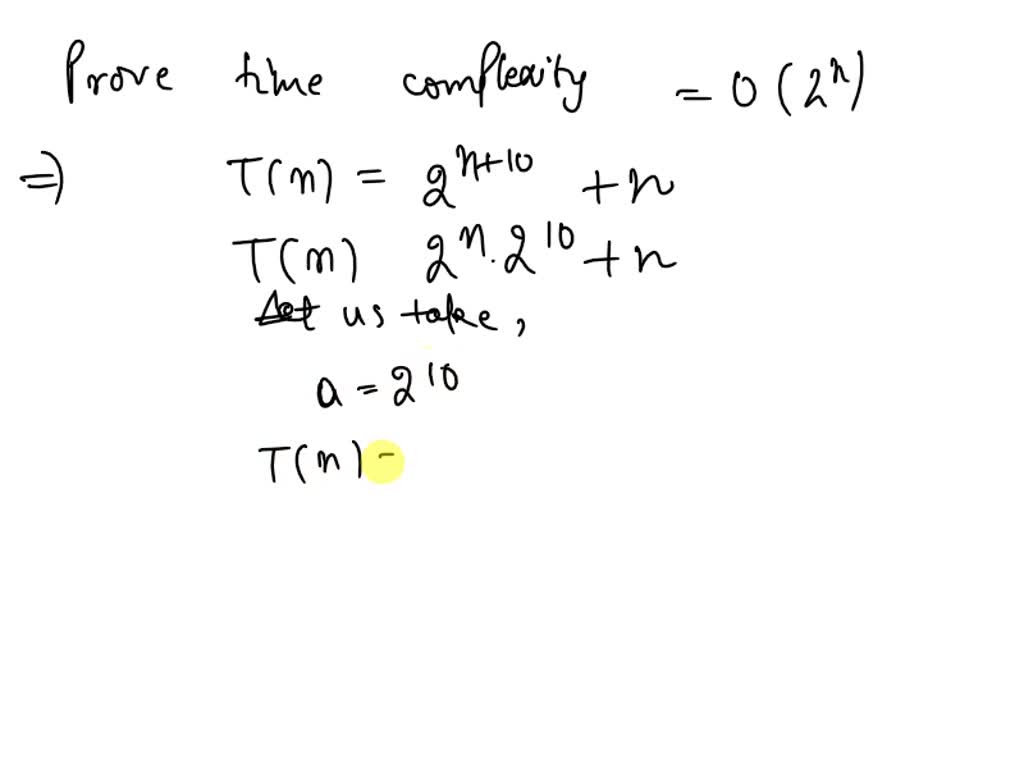 Prove time complexity = O(2ⁿ)
⇒ T(n) = 2ⁿ⁺¹⁰ + n
T(n) 2ⁿ.2¹⁰ + n
Let us take,
a = 2¹⁰
T(n) -